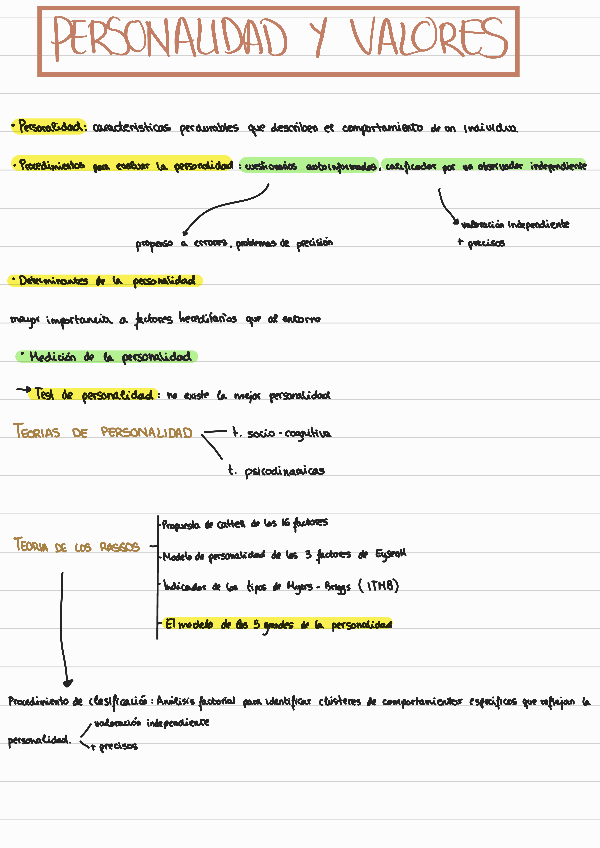 PERSONALIDAD Y VALORES
· Personalidad: características perdurables que describen el comportamiento de un individuo.
· Procedimientos para evaluar la personalidad: cuestionarios autoinformados, calificados por un observador independiente
valoración independiente
propenso a errores, problemas de precisión
+ precisos
· Determinantes de la personalidad
mayor importancia a factores hereditarios que al entorno
· Medición de la personalidad
→ Test de personalidad: no existe la mejor personalidad
TEORIAS DE PERSONALIDAD t. socio-cognitiva
t. psicodinamicas
Propuesta de cattell de los 16 factores
TEORIA DE LOS RASGOS
Modelo de personalidad de los 3 factores de Eysenk
Indicador de los tipos de Myers-Briggs (ITMB)
El modelo de los 5 grandes de la personalidad
Procedimiento de clasificación: Análisis factorial para identificar clústeres de comportamientos específicos que reflejan la
valoración independiente
personalidad.
+ precisos